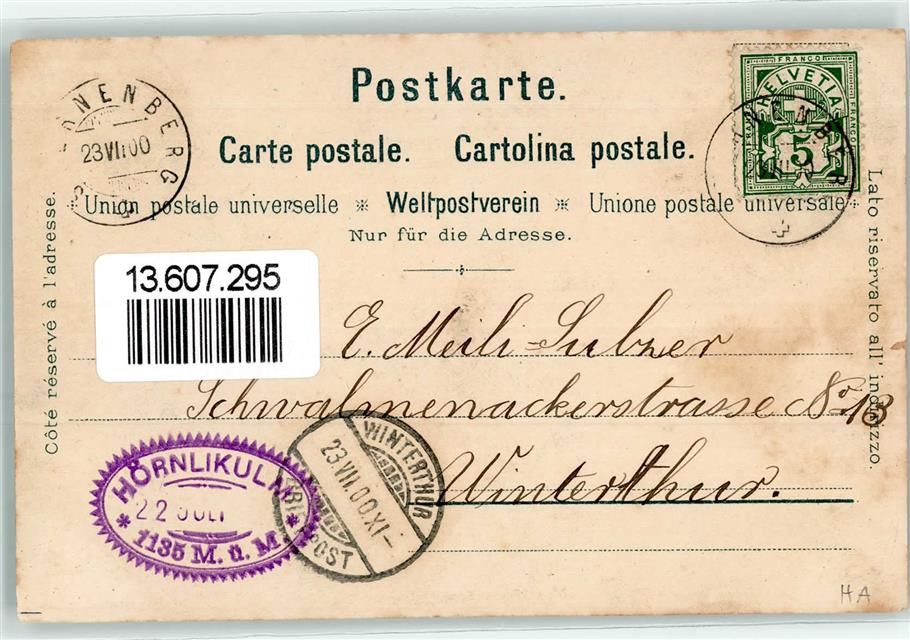 Postkarte.
Carte postale. Cartolina postale.
Union postale universelle * Weltpostverein * Unione postale universale
Nur für die Adresse.
Côté réservé à l'adresse.
Lato riservato all' indirizzo.
FRANCO
HELVETIA
5
23 VII 00
13.607.295
E. Meili-Sulzer
Schwalmenackerstrasse No. 13
Winterthur.
HÖRNLIKULM
22 JULI
* 1135 M. ü. M. *
WINTERTHUR
23.VII.00.XI-
H A